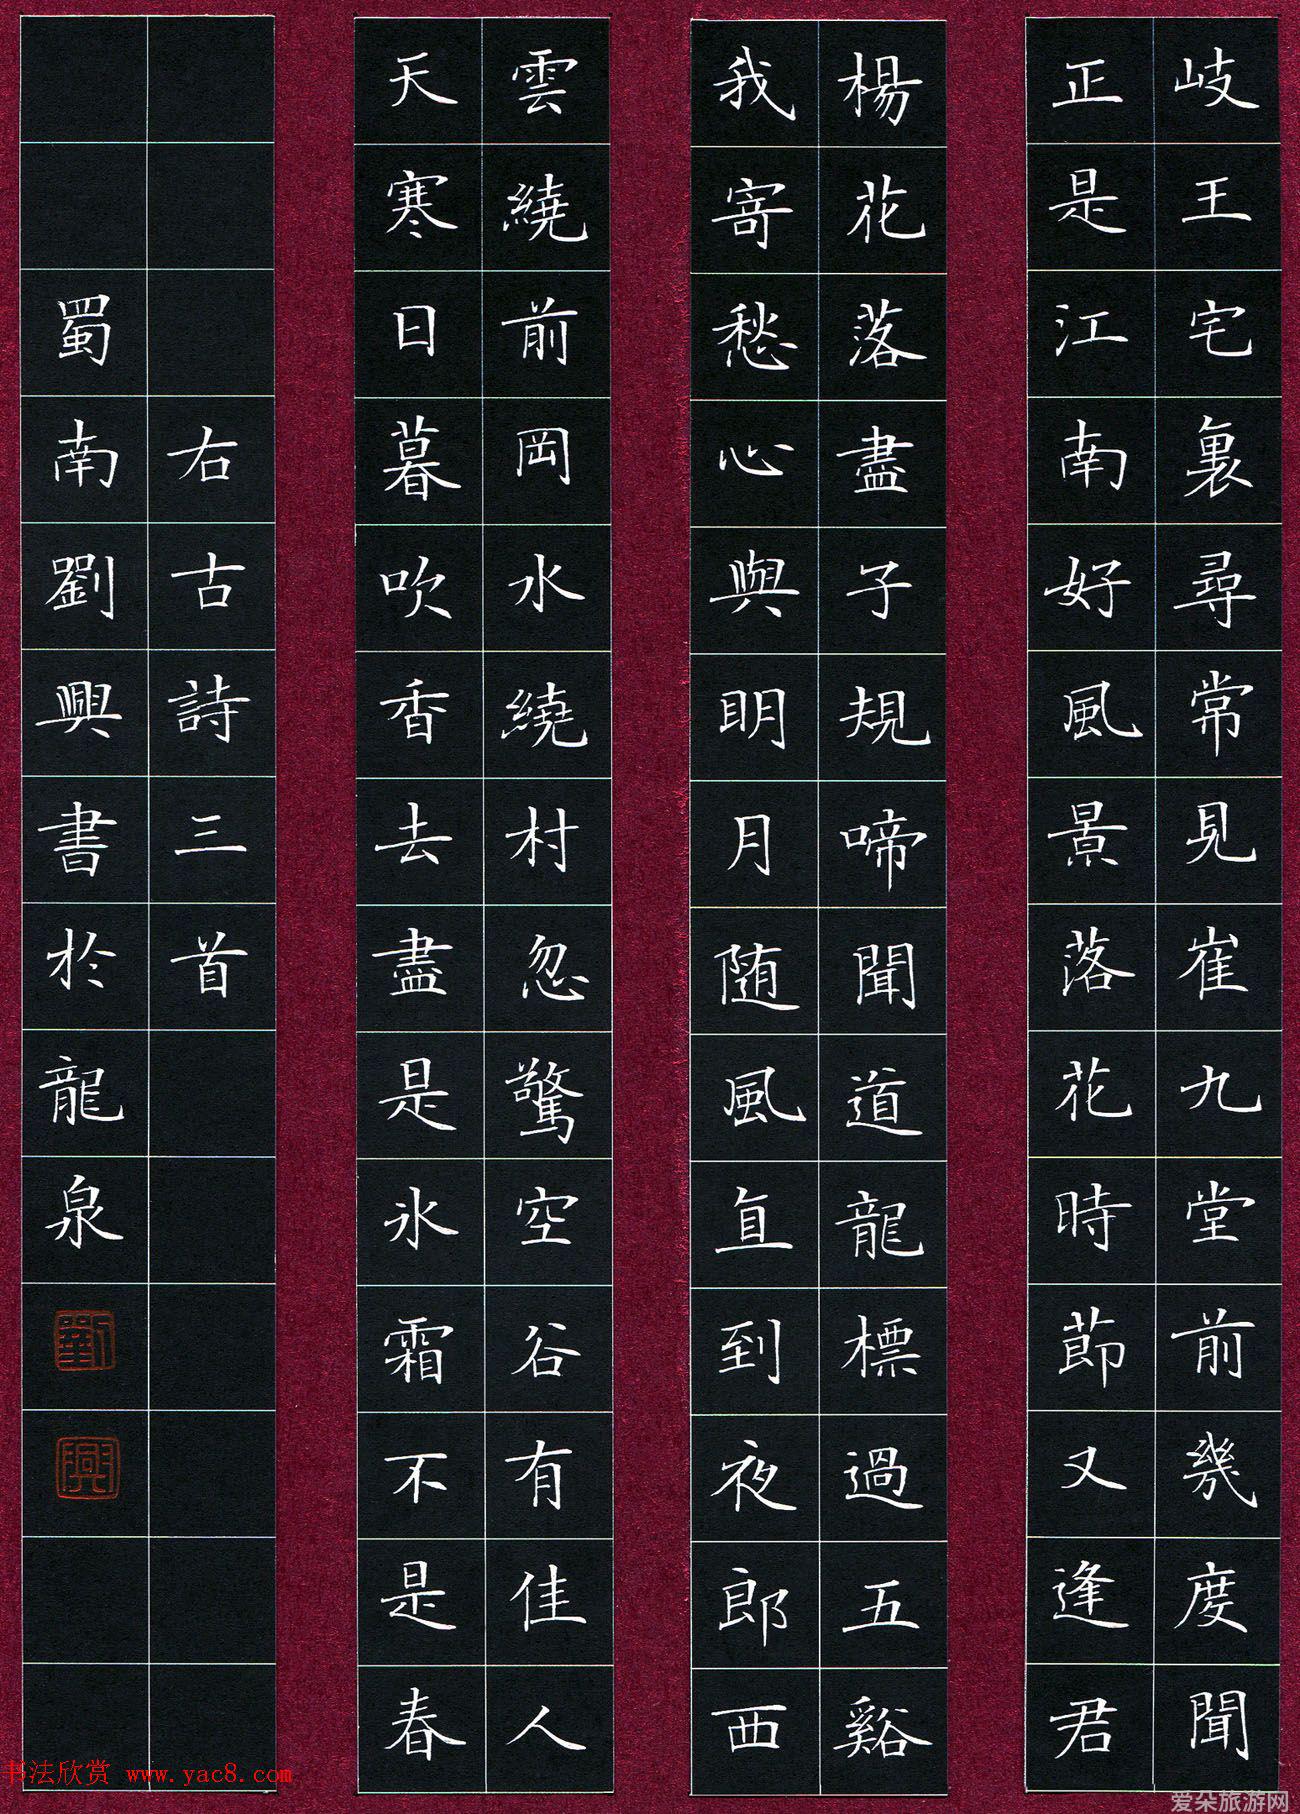 岐王宅裏尋常見崔九堂前幾度聞
正是江南好風景落花時節又逢君
楊花落盡子規啼聞道龍標過五谿
我寄愁心與明月随風直到夜郎西
雲繞前岡水繞村忽驚空谷有佳人
天寒日暮吹香去盡是氷霜不是春
右古詩三首
蜀南劉興書於龍泉
劉
興
书法欣赏 www.yac8.com
爱朵旅游网